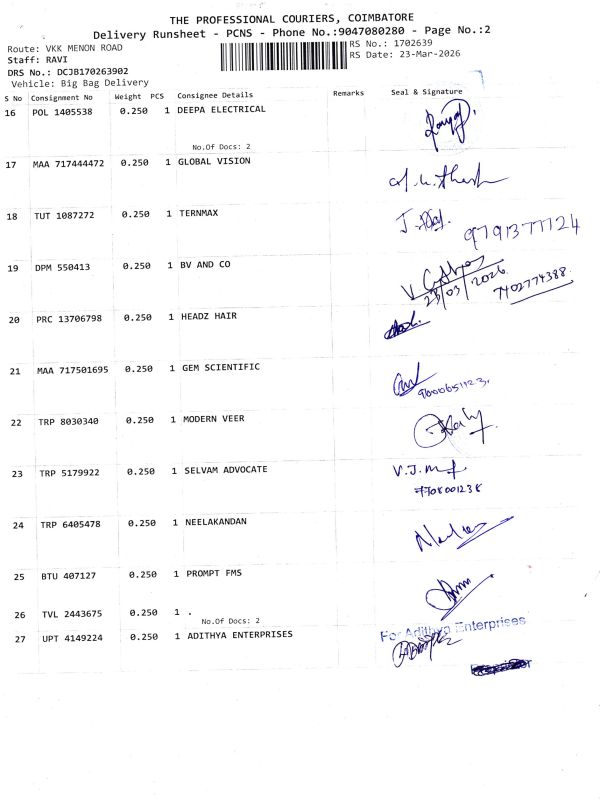 THE PROFESSIONAL COURIERS, COIMBATORE
Delivery Runsheet - PCNS - Phone No.:9047080280 - Page No.:2
Route: VKK MENON ROAD
RS No.: 1702639
Staff: RAVI
RS Date: 23-Mar-2026
DRS No.: DCJB170263902
Vehicle: Big Bag Delivery
S No Consignment No Weight PCS Consignee Details Remarks Seal & Signature
16 POL 1405538 0.250 1 DEEPA ELECTRICAL
No.Of Docs: 2
17 MAA 717444472 0.250 1 GLOBAL VISION
18 TUT 1087272 0.250 1 TERNMAX
9791377124
19 DPM 550413 0.250 1 BV AND CO
23/03/2026
7402774388
20 PRC 13706798 0.250 1 HEADZ HAIR
21 MAA 717501695 0.250 1 GEM SCIENTIFIC
22 TRP 8030340 0.250 1 MODERN VEER
23 TRP 5179922 0.250 1 SELVAM ADVOCATE
24 TRP 6405478 0.250 1 NEELAKANDAN
25 BTU 407127 0.250 1 PROMPT FMS
26 TVL 2443675 0.250 1 .
No.Of Docs: 2
27 UPT 4149224 0.250 1 ADITHYA ENTERPRISES
For Adithya Enterprises